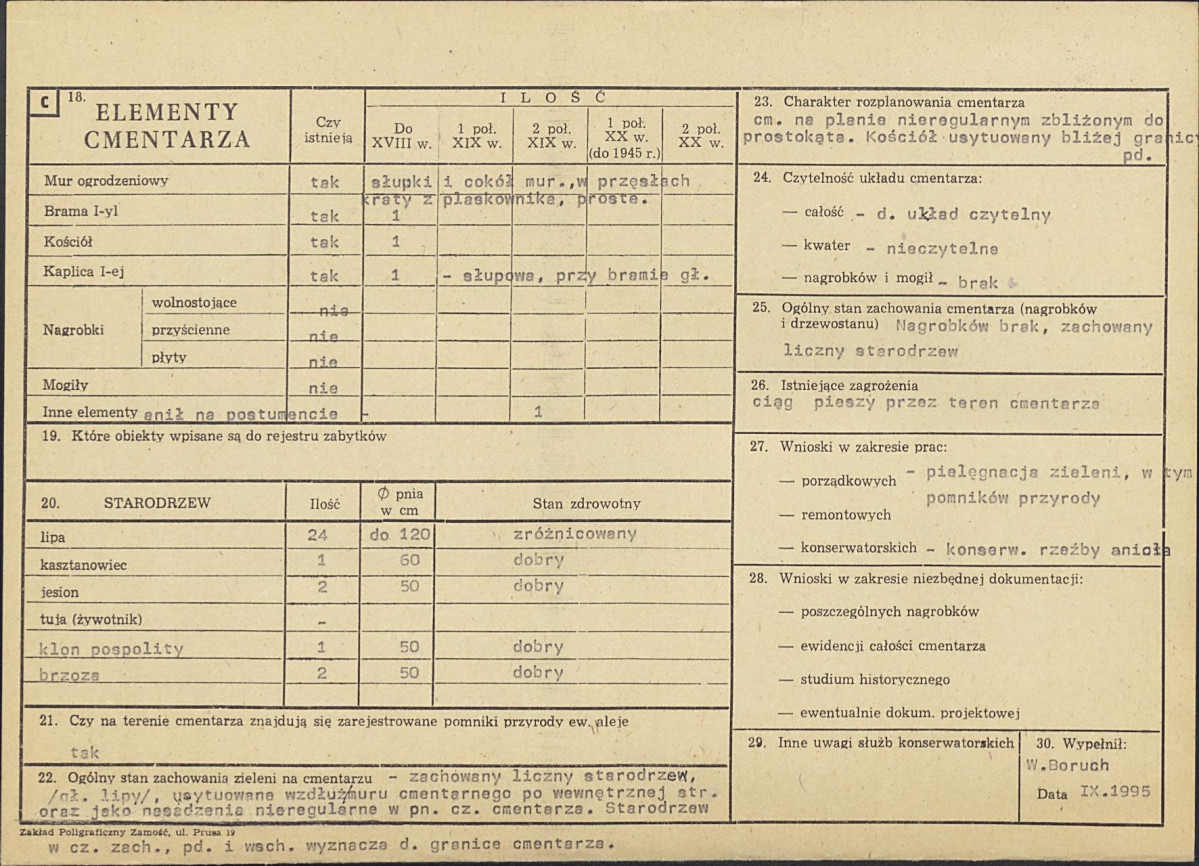 C 18. ELEMENTY CMENTARZA
Czy istnieją
I L O Ś Ć
Do XVIII w.
1 poł. XIX w.
2 poł. XIX w.
1 poł. XX w. (do 1945 r.)
2 poł. XX w.
Mur ogrodzeniowy tak słupki i cokół mur.,w przęsłach
kraty z płaskownika, proste.
Brama I-yl tak 1
Kościół tak 1
Kaplica I-ej tak 1 - słupowa, przy bramie gł.
Nagrobki
wolnostojące nie
przyścienne nie
płyty nie
Mogiły nie
Inne elementy anił na postumencie - 1
19. Które obiekty wpisane są do rejestru zabytków
20. STARODRZEW Ilość Ø pnia w cm Stan zdrowotny
lipa 24 do 120 zróżnicowany
kasztanowiec 1 60 dobry
jesion 2 50 dobry
tuja (żywotnik) -
klon pospolity 1 50 dobry
brzoza 2 50 dobry
21. Czy na terenie cmentarza znajdują się zarejestrowane pomniki przyrody ew. aleje
tak
22. Ogólny stan zachowania zieleni na cmentarzu - zachowany liczny starodrzew,
/gł. lipy/, usytuowane wzdłuż muru cmentarnego po wewnętrznej str.
oraz jako nasadzenia nieregularne w pn. cz. cmentarza. Starodrzew
Zakład Poligraficzny Zamość, ul. Prusa 19
w cz. zach., pd. i wsch. wyznacza d. granice cmentarza.
23. Charakter rozplanowania cmentarza
cm. na planie nieregularnym zbliżonym do
prostokąta. Kościół usytuowany bliżej granicy
pd.
24. Czytelność układu cmentarza:
— całość - d. układ czytelny
— kwater - nieczytelne
— nagrobków i mogił - brak
25. Ogólny stan zachowania cmentarza (nagrobków
i drzewostanu) Nagrobków brak, zachowany
liczny starodrzew
26. Istniejące zagrożenia
ciąg pieszy przez teren cmentarza
27. Wnioski w zakresie prac:
— porządkowych - pielęgnacja zieleni, w tym
pomników przyrody
— remontowych
— konserwatorskich - konserw. rzeźby anioła
28. Wnioski w zakresie niezbędnej dokumentacji:
— poszczególnych nagrobków
— ewidencji całości cmentarza
— studium historycznego
— ewentualnie dokum. projektowej
29. Inne uwagi służb konserwatorskich
30. Wypełnił:
W.Boruch
Data IX.1995